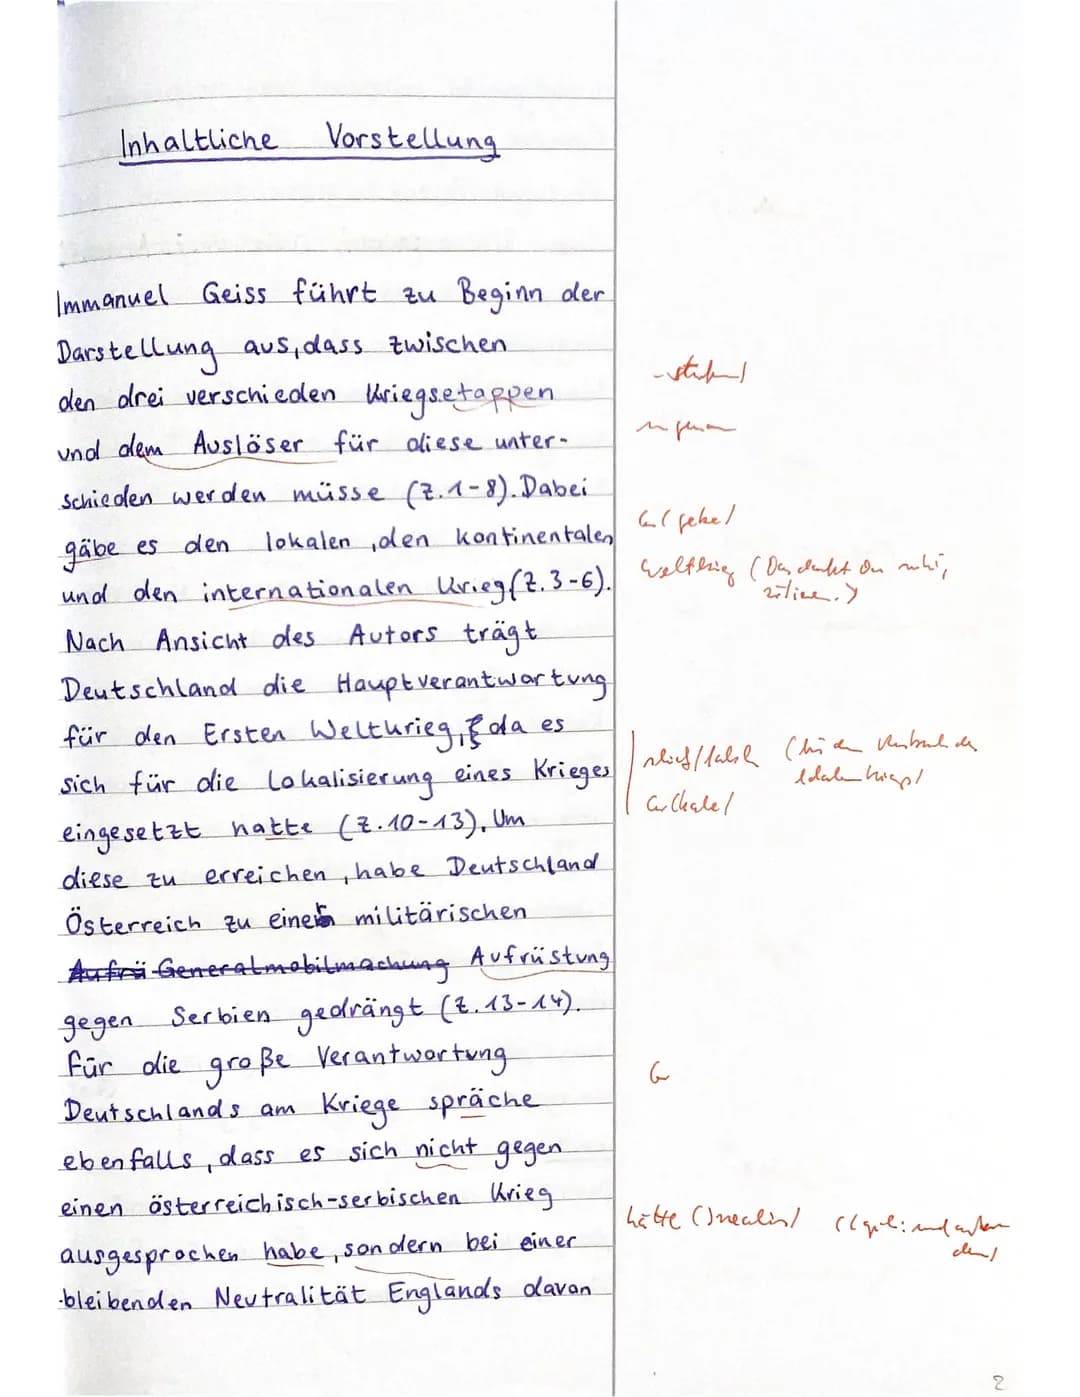 Inhaltliche Vorstellung
Immanuel Geiss führt zu Beginn der
Darstellung aus, dass zwischen
den drei verschieden Kriegsetappen
und dem Auslöser für diese unter-
schieden werden müsse (Z.1-8). Dabei
gäbe es den lokalen, den kontinentalen
und den internationalen Krieg (Z.3-6).
Nach Ansicht des Autors trägt
Deutschland die Hauptverantwortung
für den Ersten Weltkrieg, da es
sich für die Lokalisierung eines Krieges
eingesetzt hatte (Z.10-13). Um
diese zu erreichen, habe Deutschland
Österreich zu einer militärischen
Aufrü Generalmobilmachung Aufrüstung
gegen Serbien gedrängt (Z.13-14).
Für die große Verantwortung
Deutschlands am Kriege spräche
ebenfalls, dass es sich nicht gegen
einen österreichisch-serbischen Krieg
ausgesprochen habe, sondern bei einer
bleibenden Neutralität Englands davon
G (gebe)
Weltkrieg
G (habe)
G
hätte (Irrealis)
2